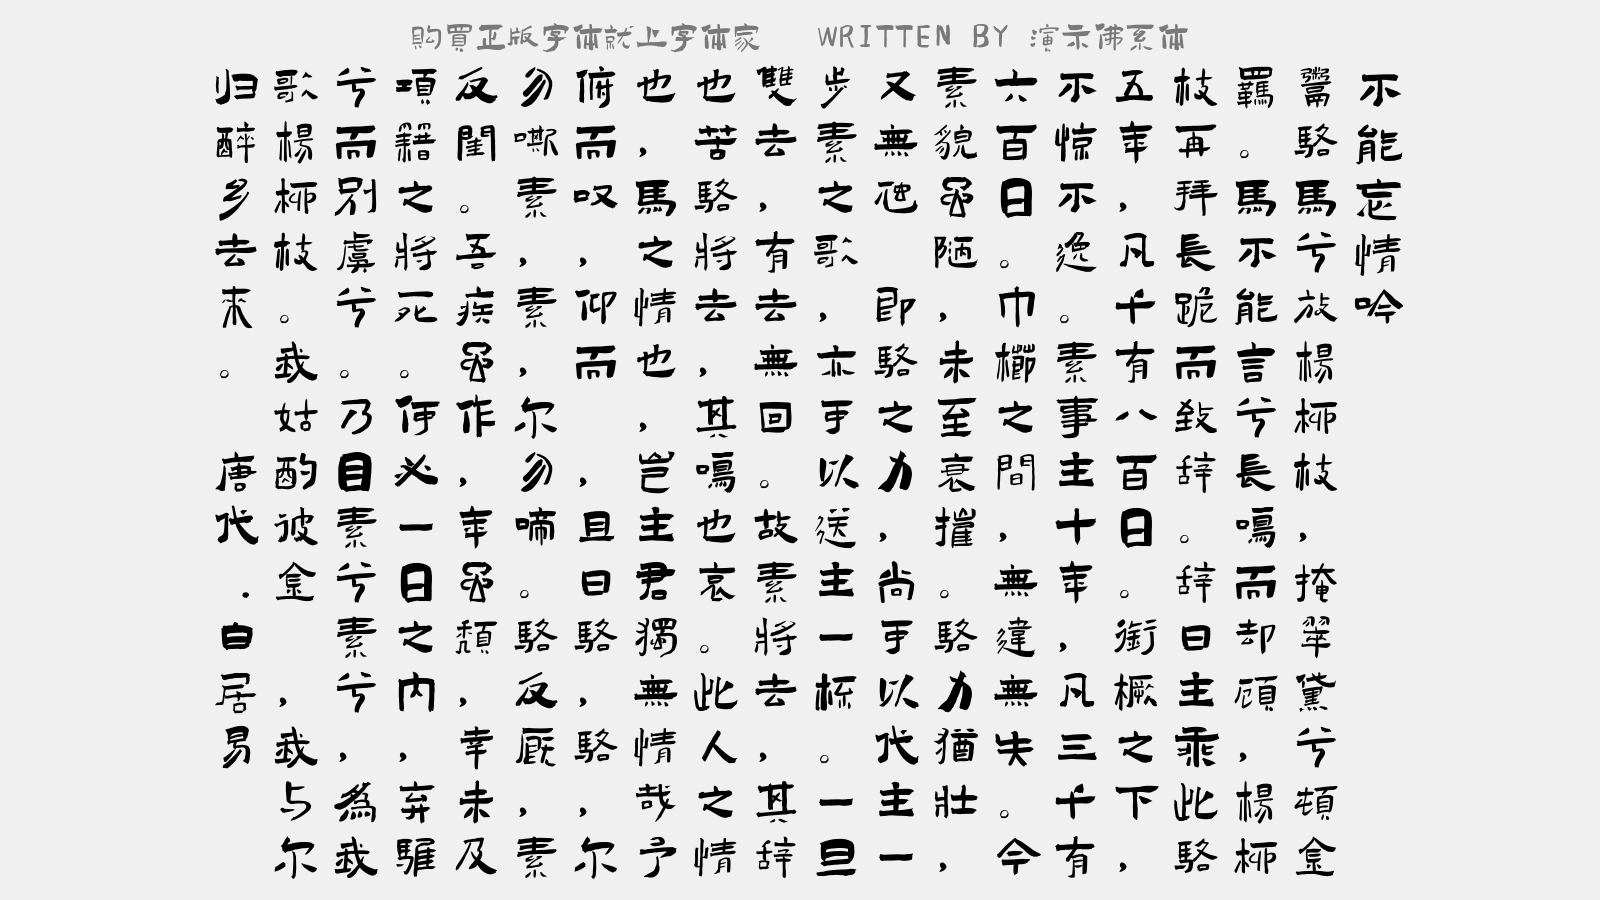 购買正版字体就上字体家 WRITTEN BY 演示佛系体
不能忘情吟
鬻駱馬兮放楊柳枝，掩翠黛兮頓金
羈。馬不能言兮長鳴而却顧，楊柳
枝再拜長跪而致辞。辞曰主乘此駱
五年，凡千有八百日。銜橛之下，
不惊不逸。素事主十年，凡三千有
六百日。巾櫛之間，無違無失。今
素貌虽陋，未至衰摧。駱力猶壮，
又無虺 即駱之力，尚可以代主一
步素之歌，亦可以送主一杯。一旦
雙去，有去無回。故素將去，其辞
也苦駱將去，其鳴也哀。此人之情
也，馬之情也，豈主君獨無情哉予
俯而叹，仰而 ，且曰駱，駱，尔
勿嘶素，素，尔勿啼。駱反厩，素
反閨。吾疾虽作，年虽頹，幸未及
項籍之將死。何必一日之内，弃騅
兮而别虞兮。乃目素兮素兮，為我
歌楊柳枝。我姑酌彼金 ，我与尔
归醉乡去来。 唐代．白居易